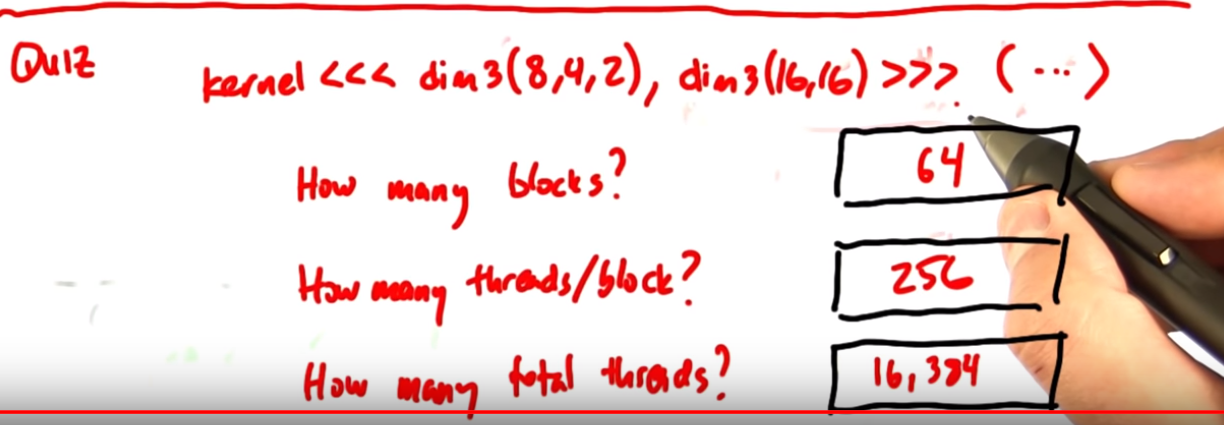 Quiz
kernel <<< dim3(8,4,2), dim3(16,16) >>> (...)
How many blocks?
64
How many threads/block?
256
How many total threads?
16,384